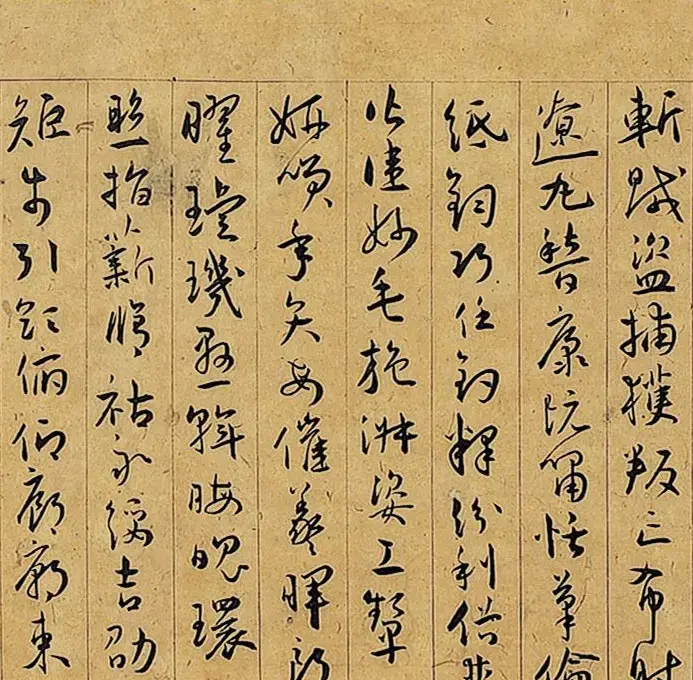 斬賊盜捕獲叛亡布射
遼丸嵇康阮嘯恬筆倫
紙鈞巧任釣釋紛利俗並
皆佳妙毛施淑姿工顰
妍笑年矢每催羲暉朗
曜璇璣懸斡晦魄環
照指薪脩祜永綏吉劭
矩步引領俯仰廊廟束